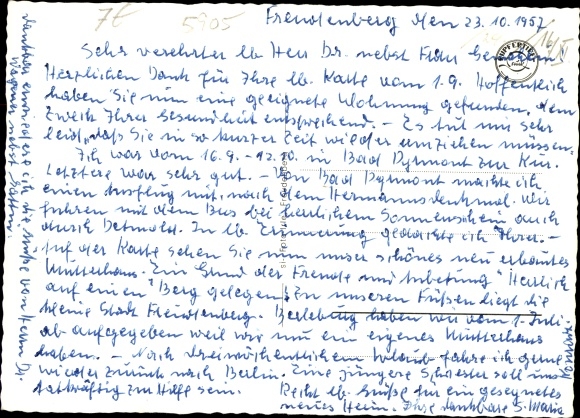 7€ 5905
Freudenberg den 23.10.1957
Sehr verehrter lb. Herr Dr. nebst Frau Gemahlin
Herzlichen Dank für Ihre lb. Karte vom 1.9. Hoffentlich
haben Sie nun eine geeignete Wohnung gefunden, dem
Zweck Ihrer Gesundheit entsprechend. - Es tut mir sehr
leid, daß Sie in so kurzer Zeit wieder umziehen mussen.
Ich war vom 16.9. - 12.10. in Bad Pyrmont zur Kur.
Letztere war sehr gut. - Von Bad Pyrmont machte ich
einen Ausflug mit, nach dem Hermannsdenkmal. Wir
fuhren mit dem Bus bei herrlichem Sonnenschein auch
durch Detmold. In lb. Erinnerung gedachte ich Ihrer. -
Auf der Karte sehen Sie nun unser schönes neu erbautes
Mutterhaus. Ein Grund der Freude und Anbetung. Herrlich
auf einen Berg gelegen. Zu unseren Füßen liegt die
kleine Stadt Freudenberg. Berleburg haben wir vom 1. Juli
ab aufgegeben weil wir nun ein eigenes Mutterhaus
haben. - Nach dreiwöchentlichem Urlaub fahre ich gerne
wieder zurück nach Berlin. Eine jüngere Schwester soll uns
tatkräftig zur Hilfe sein.
Recht lb. Grüße für ein gesegnetes
neues Heim. Ihre dankbare S. Marie
dankbar erwidere ich die Grüße von Herrn Dr.
nebst